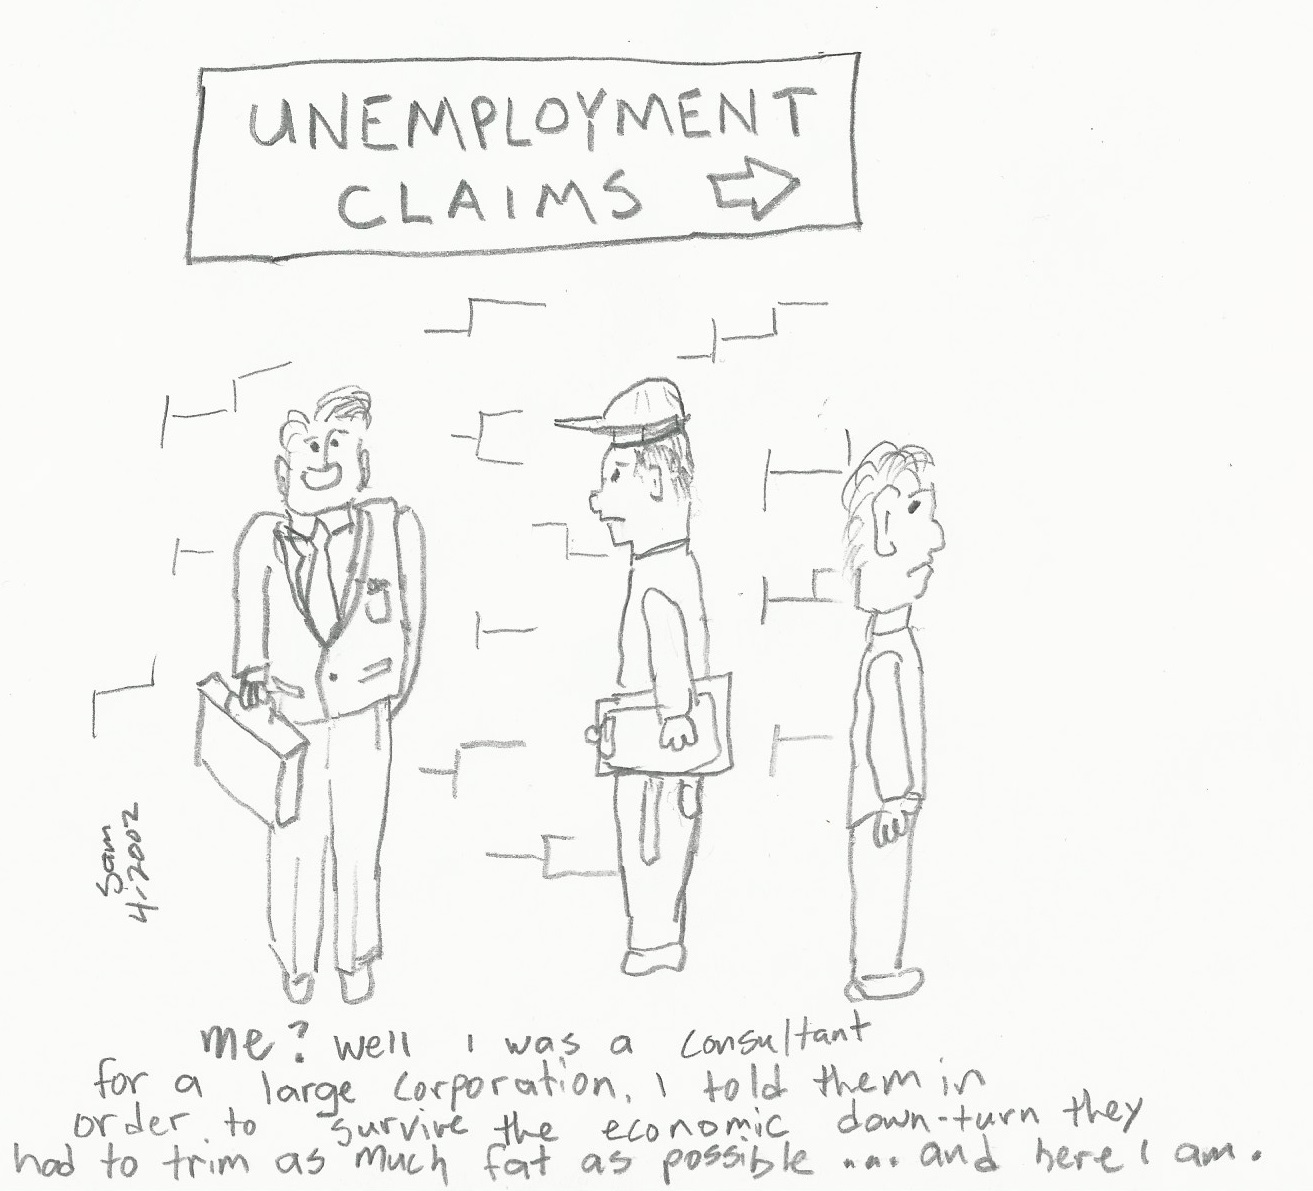 UNEMPLOYMENT
CLAIMS
Sam
4/2002
me? well I was a consultant
for a large corporation. I told them in
order to survive the economic down-turn they
had to trim as much fat as possible .... and here I am.